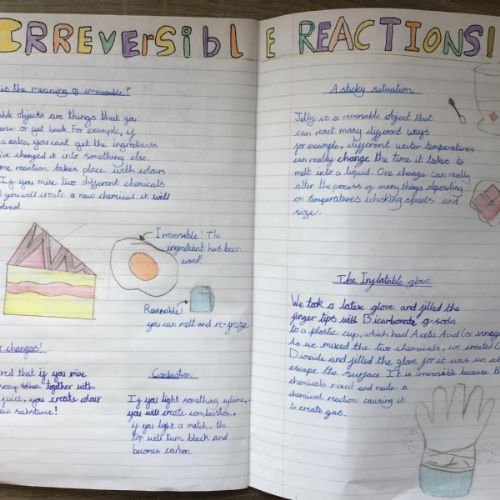 IRREVERSIBLE REACTIONS!
is the meaning of irreversible?
objects are things that you
or get back. For example, if
a cake, you cant get the ingredients
changed it into something else.
reaction takes place with colours
If you mix two different chemicals
you will create a new chemical. it will
Irreversible! The
ingredient has been
used!
Reversable!
you can melt and re-freeze
changes!
that if you mix
together with
juice, you create colour
substance!
Combustion
If you light something aflame,
you will create combustion,
if you light a match, the
top will turn black and
becomes carbon
A sticky situation
Jelly is a reversable object that
can react many different ways
for example, different water temperatures
can really change the time it takes to
melt into a liquid. One change can really
alter the process of many things depending
on temperatures whisking speeds and
size.
The Inflatable glove
We took a latex glove and filled the
finger tips with Bicarbonate of soda
to a plastic cup, which had Acetic Acid (or
As we mixed the two chemicals, we created
Dioxide and filled the glove for it was
escape the surface. It is irreversable because
chemicals mixed and made a
chemical reaction causing it
to create gas.